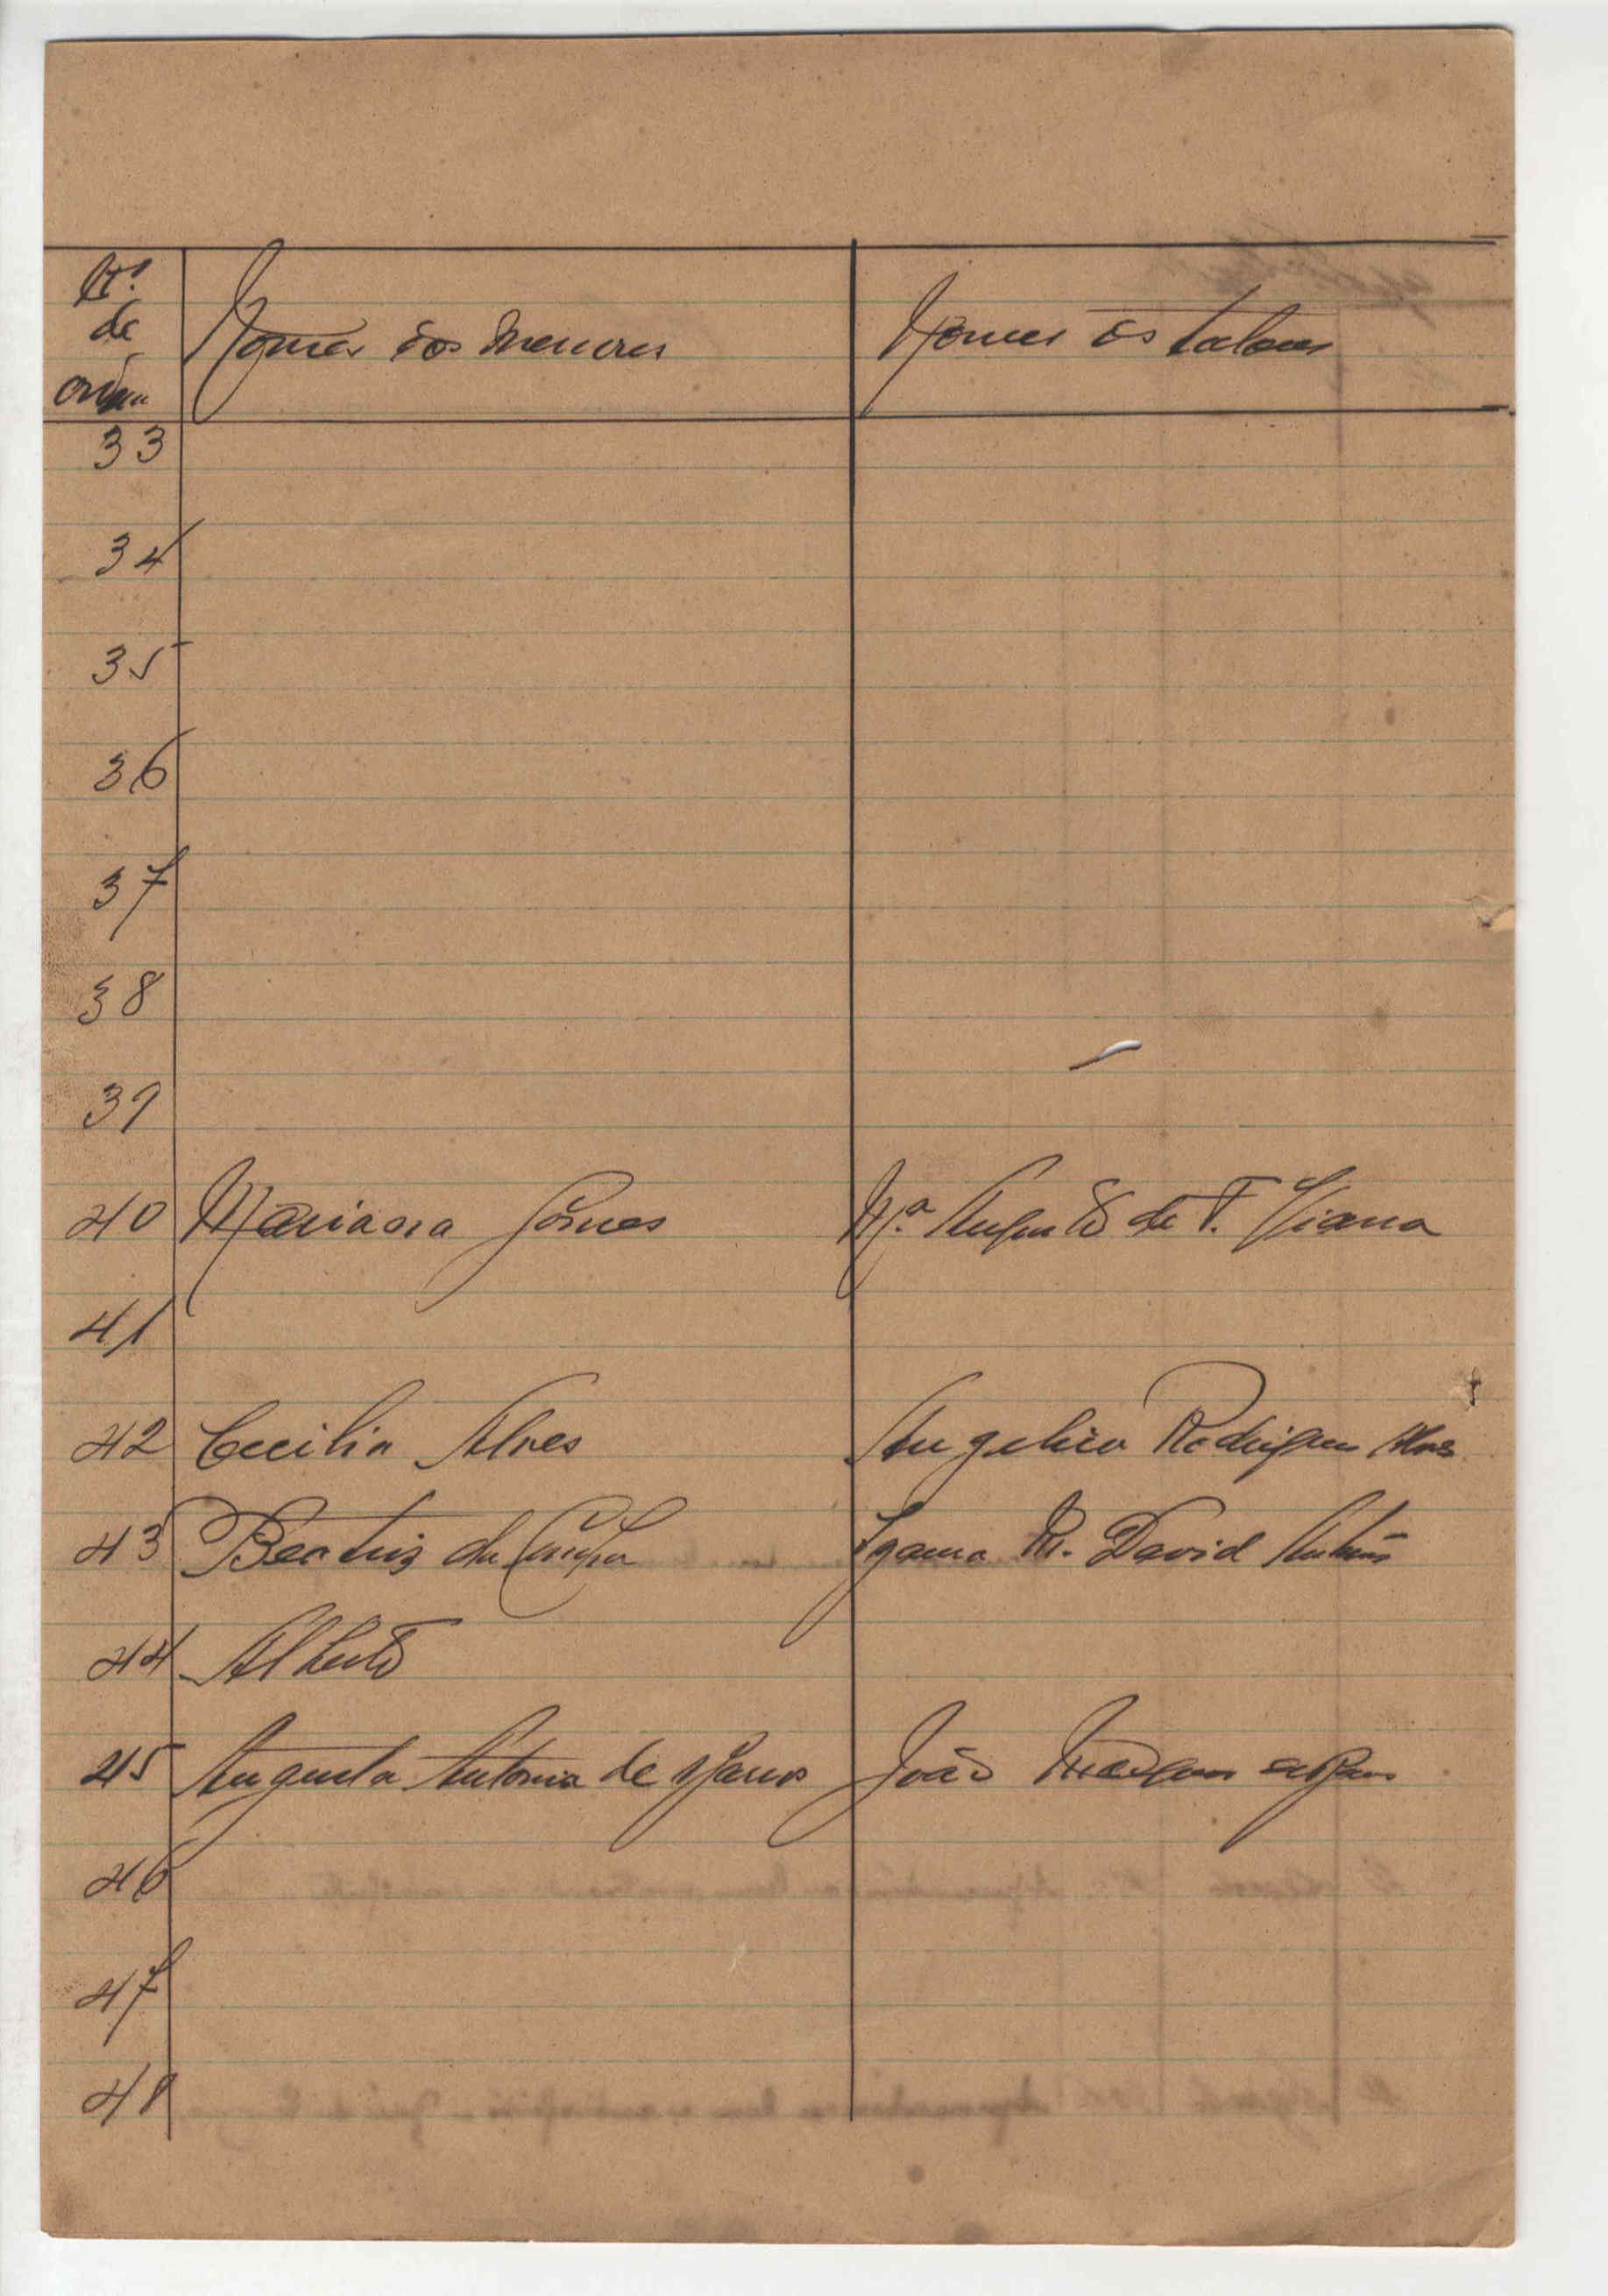 Nº
de
ordem
Nomes dos menores
Nomes dos tutores
33
34
35
36
37
38
39
40 Marianna Gomes Mª Augusta de F. Vianna
41
42 Cecilia Alves Angelica Rodrigues Alves
43 Beatriz da Cunha M. David
44 Alberto
45 Augusta Antonia de João
46
47
48